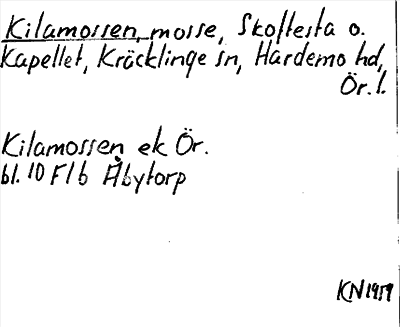 Kilamossen, mosse, Skoftesta o.
Kapellet, Kräcklinge sn, Hardemo hd,
Ör. l.
Kilamossen ek Ör.
bl. 10 F1b Åbytorp
KN 1959